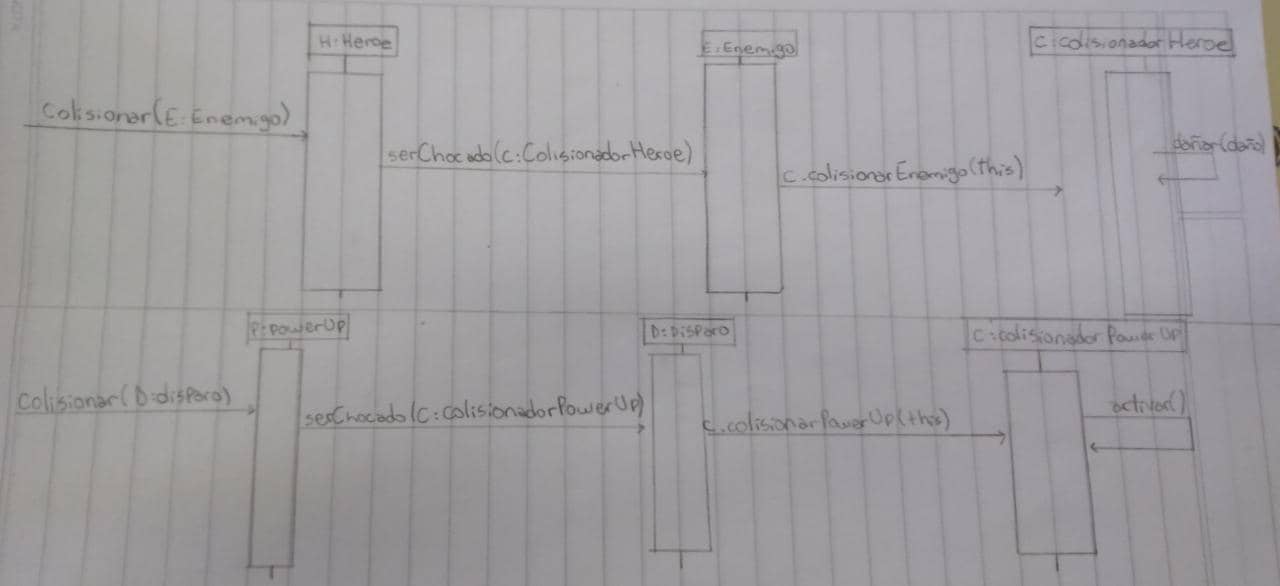 H:Heroe
E:Enemigo
C:colisionadorHeroe
Colisionar(E:Enemigo)
serChocado(c:ColisionadorHeroe)
c.colisionarEnemigo(this)
dañar(daño)
P:powerUp
D:Disparo
C:colisionadorPowerUp
Colisionar(D:disparo)
serChocado(C:colisionadorPowerUp)
c.colisionarPowerUp(this)
activar()